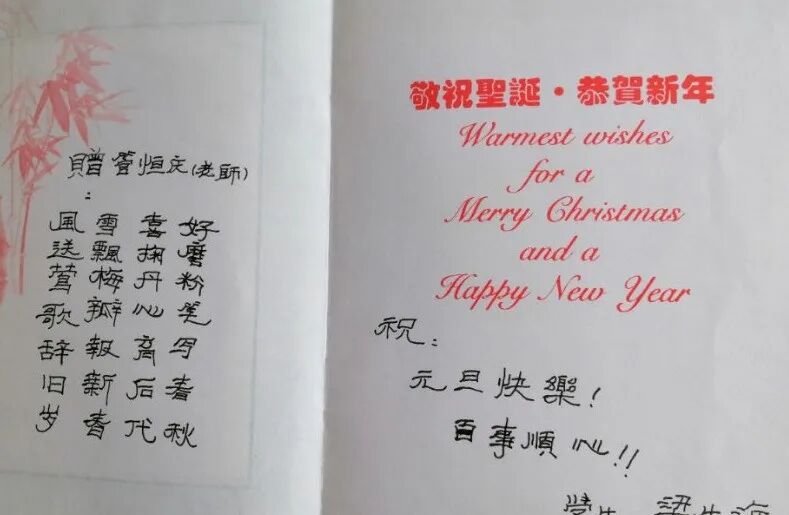 贈 恒庆(老師)
:
風送鶯歌辞旧岁
雪飄梅瓣報新春
喜掬丹心育后代
好磨粉笔写春秋
敬祝聖誕·恭賀新年
Warmest wishes
for a
Merry Christmas
and a
Happy New Year
祝:
元旦快樂!
百事順心!!